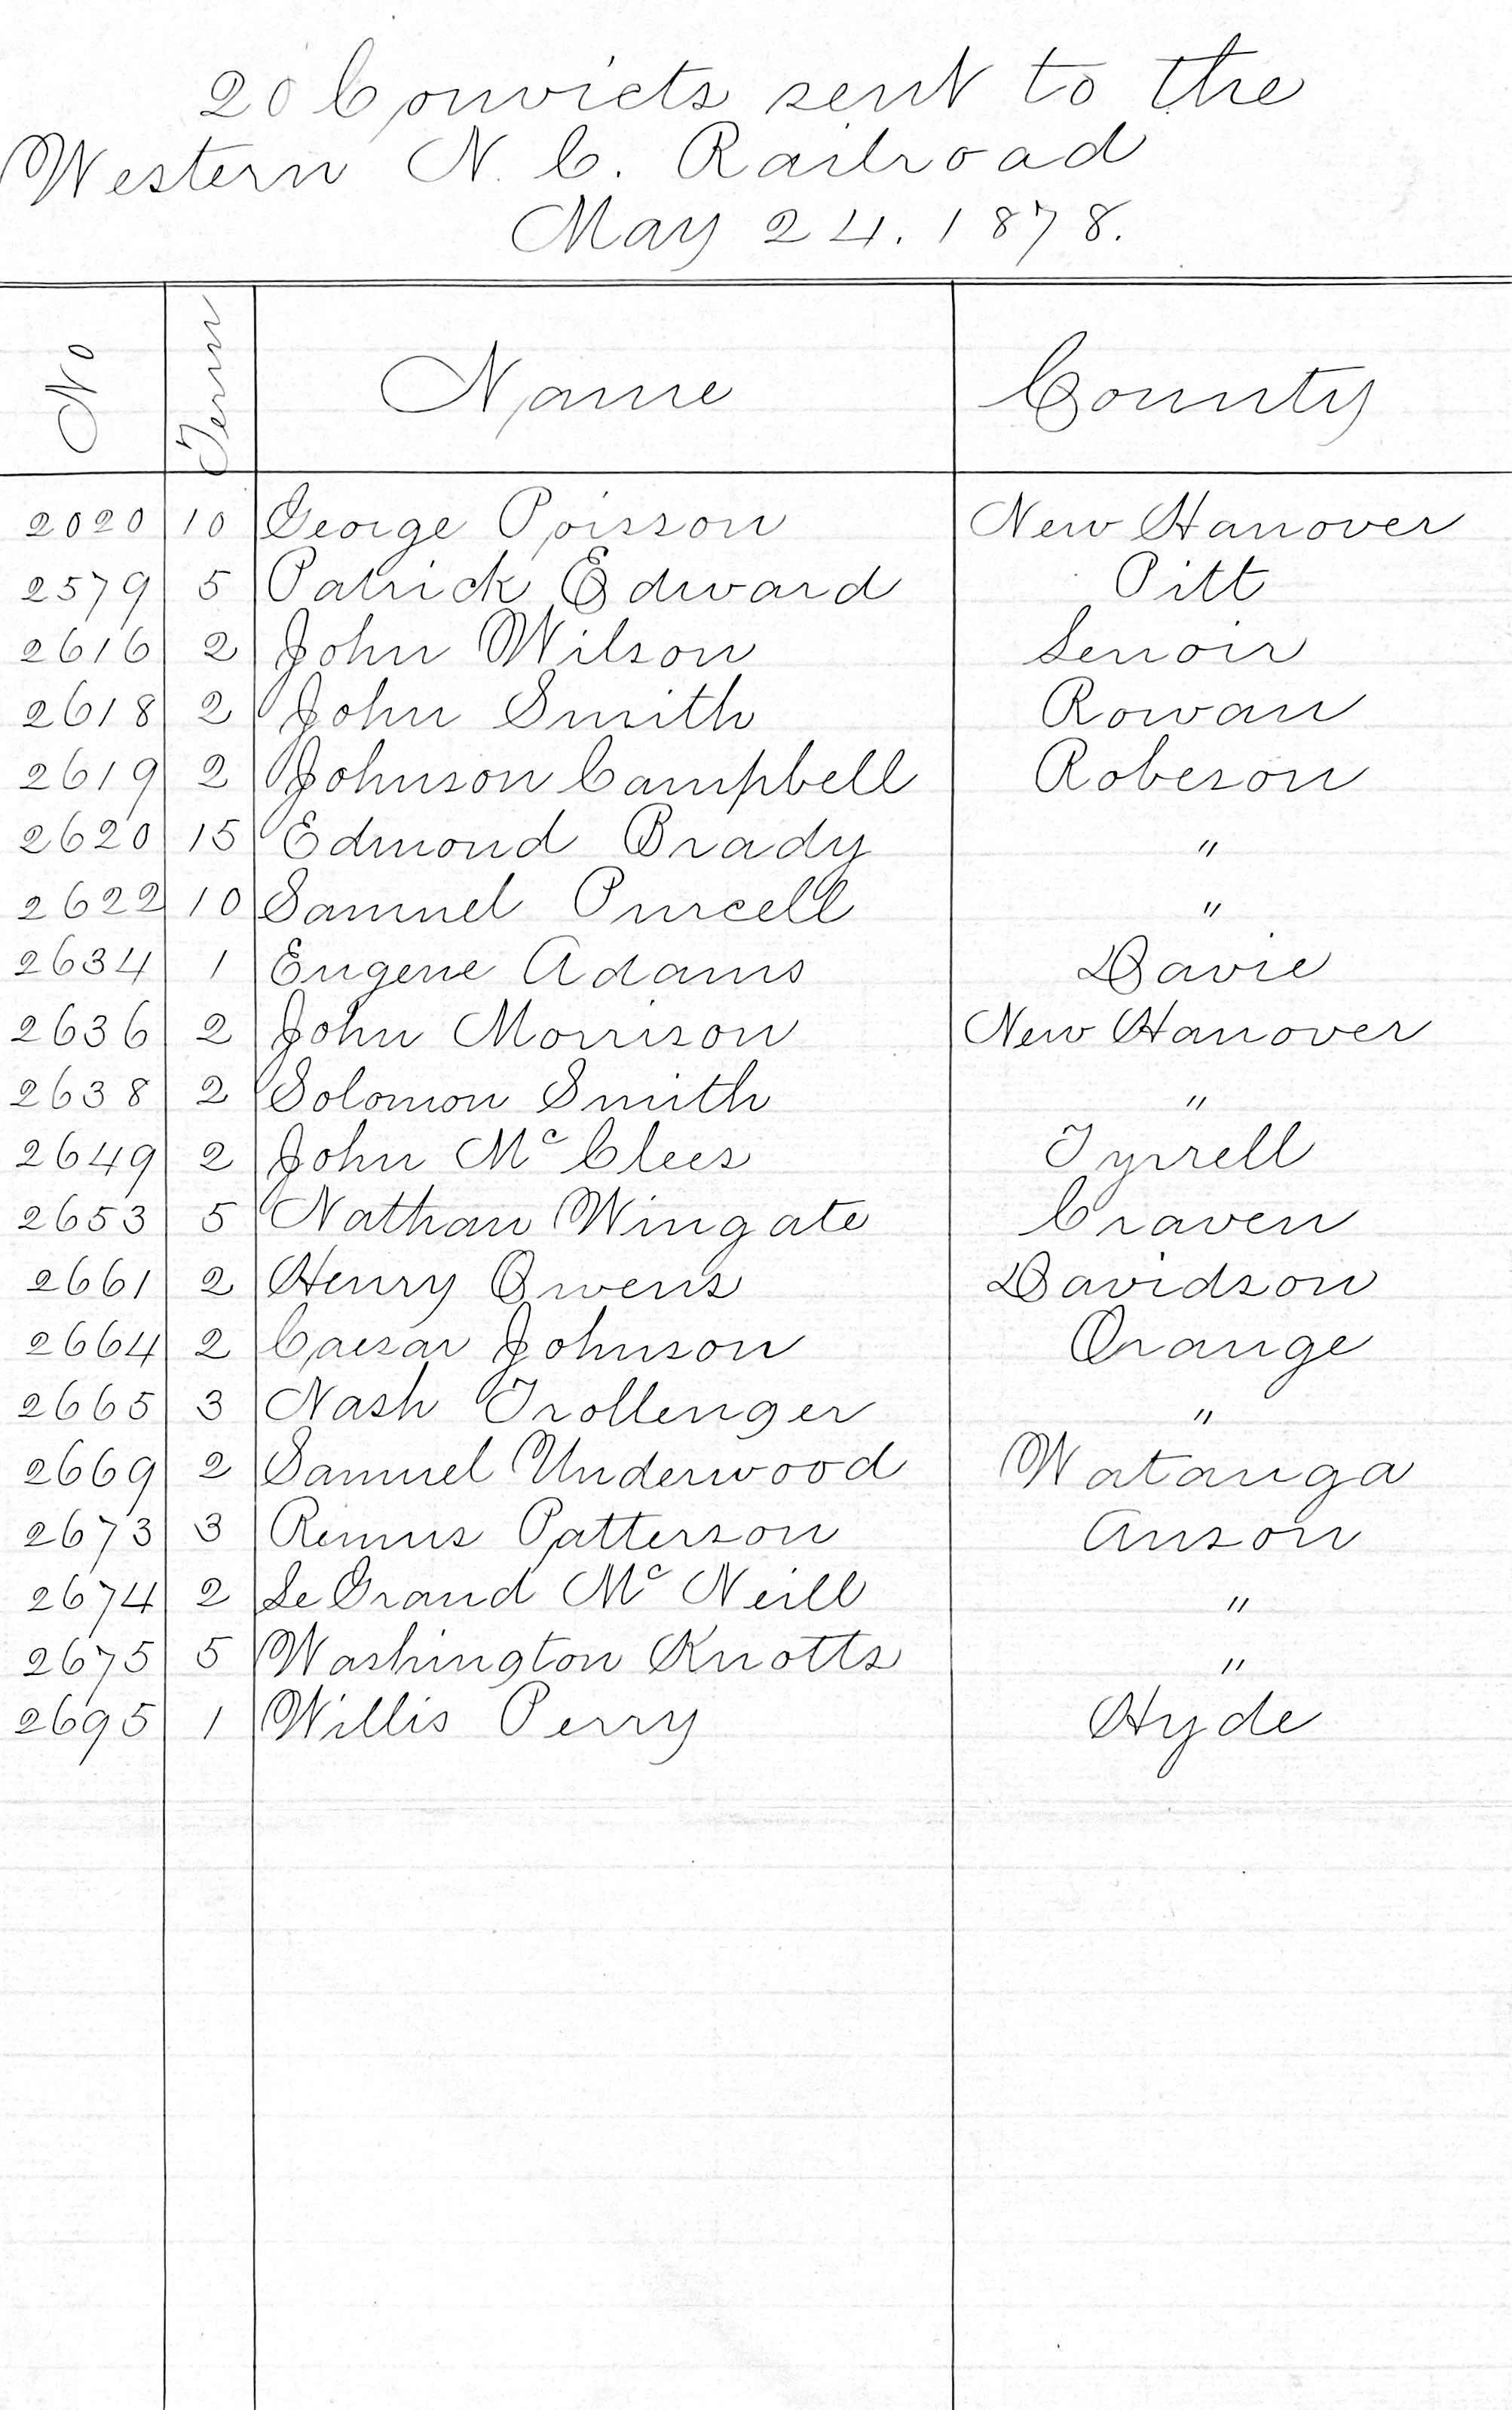 20 Convicts sent to the
Western N. C. Railroad
May 24. 1878.
No Term Name County
2020 10 George Poisson New Hanover
2579 5 Patrick Edward Pitt
2616 2 John Wilson Lenoir
2618 2 John Smith Rowan
2619 2 Johnson Campbell Robeson
2620 15 Edmond Brady "
2622 10 Samuel Purcell "
2634 1 Eugene Adams Davie
2636 2 John Morrison New Hanover
2638 2 Solomon Smith "
2649 2 John Mc Clees Tyrrell
2653 5 Nathan Wingate Craven
2661 2 Henry Owens Davidson
2664 2 Caesar Johnson Orange
2665 3 Nash Trollenger "
2669 2 Samuel Underwood Watanga
2673 3 Remus Patterson Anson
2674 2 Le Grand Mc Neill "
2675 5 Washington Knotts "
2695 1 Willis Perry Hyde